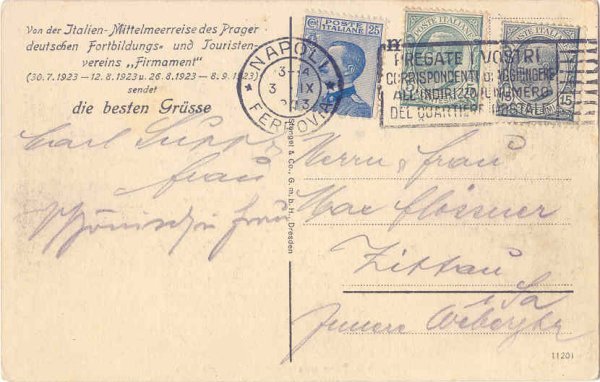 Von der Italien-Mittelmeerreise des Prager
deutschen Fortbildungs- und Touristen-
vereins „Firmament"
(30.7.1923 — 12.8.1923 u. 26.8.1923 — 8.9.1923)
sendet
die besten Grüsse
Carl
Frau
Frau
NAPOLI
3 IX
FERROVIA
POSTE
ITALIANE
25
POSTE ITALIANE
POSTE ITALIANE
15
PREGATE I VOSTRI
CORRISPONDENTI DI AGGIUNGERE
ALL'INDIRIZZO IL NUMERO
DEL QUARTIERE POSTALE
Stengel & Co., G. m. b. H., Dresden
Herrn u. Frau
Max
Zittau
i/Sa
Innere Weberstr
11201